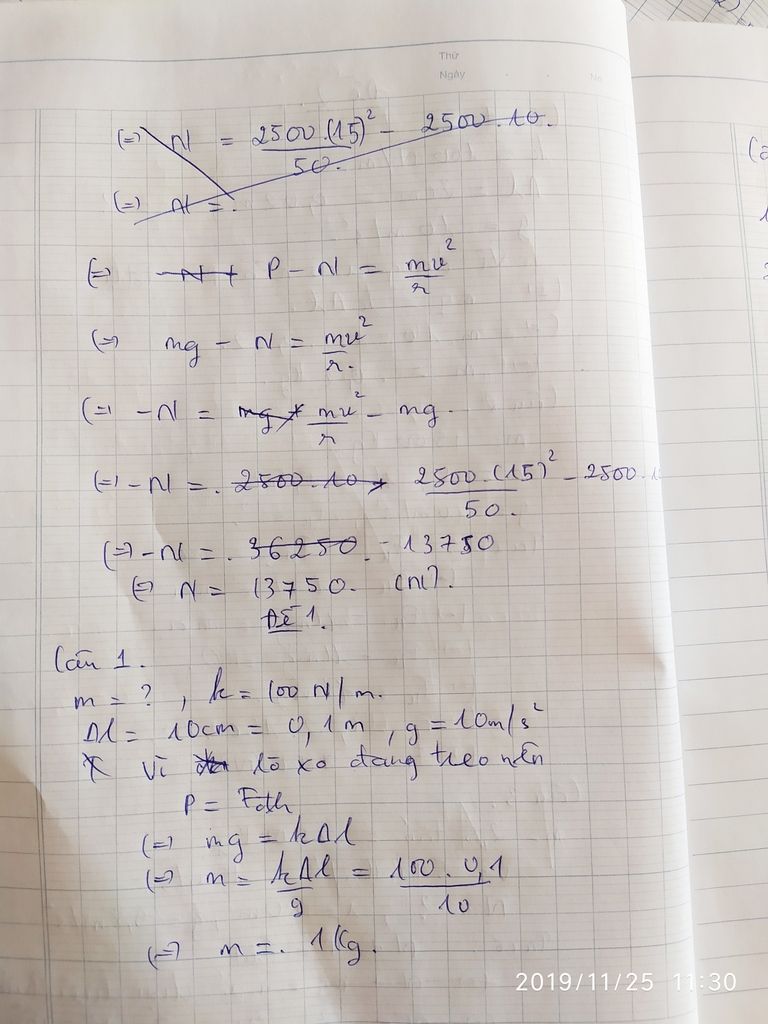 Thứ
Ngày
No
(=) N = 2500.(15)²/50. - 2500.10.
(=) N = .
(=) -N + P - N = mv²/r
(=) mg - N = mv²/r.
(=) -N = mg + mv²/r - mg.
(=) -N = . 2500.10 + 2500.(15)²/50. - 2500.10
(=) -N = . 36250. - 13750
(=) N = 13750. (N).
Đề 1.
Câu 1.
m = ? , k = 100 N/m.
Δl = 10cm = 0,1m , g = 10m/s²
* Vì lò xo đang treo nên
P = Fđh
(=) mg = kΔl
(=) m = kΔl/g = 100.0,1/10
(=) m = . 1Kg.
2019/11/25 11:30